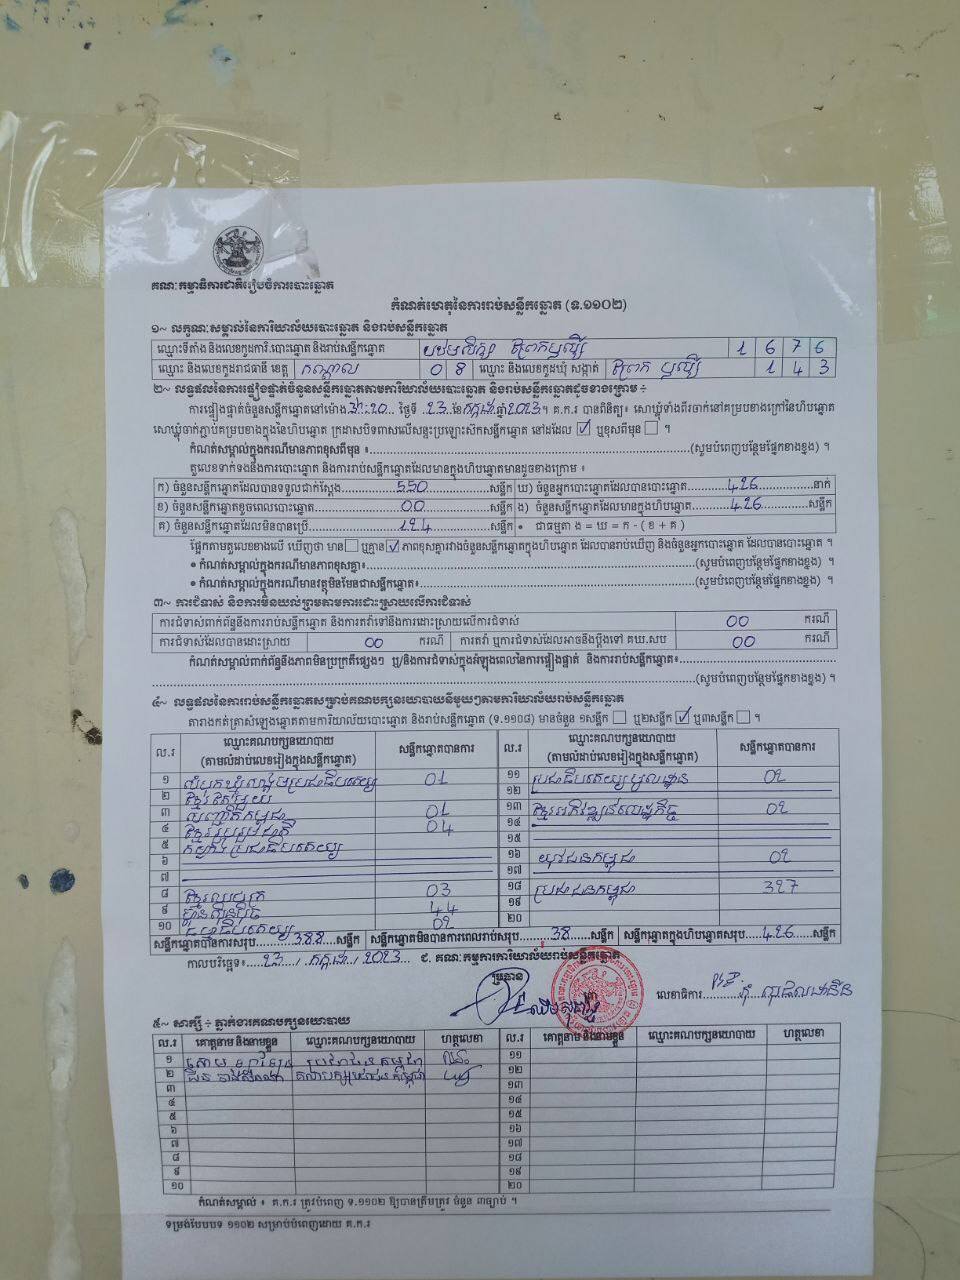 គណៈកម្មាធិការជាតិរៀបចំការបោះឆ្នោត
កំណត់ហេតុនៃការរាប់សន្លឹកឆ្នោត (ទ.១១០២)
១~ លក្ខណៈសម្គាល់នៃការិយាល័យបោះឆ្នោត និងរាប់សន្លឹកឆ្នោត
ឈ្មោះទីតាំង និងលេខកូដការិ.បោះឆ្នោត និងរាប់សន្លឹកឆ្នោត 1 6 7 6
ឈ្មោះ និងលេខកូដរាជធានី ខេត្ត កណ្តាល 0 8 ឈ្មោះ និងលេខកូដឃុំ សង្កាត់ 1 4 3
២~ លទ្ធផលនៃការផ្ទៀងផ្ទាត់ចំនួនសន្លឹកឆ្នោតតាមការិយាល័យបោះឆ្នោត និងរាប់សន្លឹកឆ្នោតដូចខាងក្រោម ÷
ការផ្ទៀងផ្ទាត់ចំនួនសន្លឹកឆ្នោតនៅម៉ោង ថ្ងៃទី 23 ខែ កក្កដា ឆ្នាំ 2023 ។ គ.ក.រ បានពិនិត្យ៖ សោឃ្លុំទាំងពីរចាក់នៅគម្របខាងក្រៅនៃហិបឆ្នោត
សោឃ្លុំចាក់ភ្ជាប់គម្របខាងក្នុងនៃហិបឆ្នោត ក្រដាសបិទពាសលើសន្ទះប្រឡោះស៊កសន្លឹកឆ្នោត នៅដដែល ☑ ឬខុសពីមុន ☐ ។
កំណត់សម្គាល់ក្នុងករណីមានភាពខុសពីមុន ៖ (សូមបំពេញបន្ថែមផ្នែកខាងខ្នង) ។
តួលេខទាក់ទងនឹងការបោះឆ្នោត និងការរាប់សន្លឹកឆ្នោតដែលមានក្នុងហិបឆ្នោតមានដូចខាងក្រោម ៖
ក) ចំនួនសន្លឹកឆ្នោតដែលបានទទួលជាក់ស្តែង 550 សន្លឹក ឃ) ចំនួនអ្នកបោះឆ្នោតដែលបានបោះឆ្នោត 426 នាក់
ខ) ចំនួនសន្លឹកឆ្នោតខូចពេលបោះឆ្នោត 00 សន្លឹក ង) ចំនួនសន្លឹកឆ្នោតដែលមានក្នុងហិបឆ្នោត 426 សន្លឹក
គ) ចំនួនសន្លឹកឆ្នោតដែលមិនបានប្រើ 124 សន្លឹក • ជាធម្មតា ង = ឃ = ក - ( ខ + គ )
ផ្អែកតាមតួលេខខាងលើ ឃើញថា មាន ☐ ឬគ្មាន ☑ ភាពខុសគ្នារវាងចំនួនសន្លឹកឆ្នោតក្នុងហិបឆ្នោត ដែលបានរាប់ឃើញ និងចំនួនអ្នកបោះឆ្នោត ដែលបានបោះឆ្នោត ។
• កំណត់សម្គាល់ក្នុងករណីមានភាពខុសគ្នា៖ (សូមបំពេញបន្ថែមផ្នែកខាងខ្នង) ។
• កំណត់សម្គាល់ក្នុងករណីមានវត្ថុមិនមែនជាសន្លឹកឆ្នោត៖ (សូមបំពេញបន្ថែមផ្នែកខាងខ្នង) ។
៣~ ការជំទាស់ និងការមិនយល់ព្រមតាមការដោះស្រាយលើការជំទាស់
ការជំទាស់ពាក់ព័ន្ធនឹងការរាប់សន្លឹកឆ្នោត និងការតវ៉ាទៅនឹងការដោះស្រាយលើការជំទាស់ 00 ករណី
ការជំទាស់ដែលបានដោះស្រាយ 00 ករណី ការតវ៉ា ឬការជំទាស់ដែលអាចនឹងប្តឹងទៅ គឃ.សប 00 ករណី
កំណត់សម្គាល់ពាក់ព័ន្ធនឹងភាពមិនប្រក្រតីផ្សេងៗ ឬ/និងការជំទាស់ក្នុងអំឡុងពេលនៃការផ្ទៀងផ្ទាត់ និងការរាប់សន្លឹកឆ្នោត៖
(សូមបំពេញបន្ថែមផ្នែកខាងខ្នង) ។
៤~ លទ្ធផលនៃការរាប់សន្លឹកឆ្នោតសម្រាប់គណបក្សនយោបាយនីមួយៗតាមការិយាល័យរាប់សន្លឹកឆ្នោត
តារាងកត់ត្រាសំឡេងឆ្នោតតាមការិយាល័យបោះឆ្នោត និងរាប់សន្លឹកឆ្នោត (ទ.១១០៨) មានចំនួន ១សន្លឹក ☐ ឬ២សន្លឹក ☑ ឬ៣សន្លឹក ☐ ។
ល.រ ឈ្មោះគណបក្សនយោបាយ (តាមលំដាប់លេខរៀងក្នុងសន្លឹកឆ្នោត) សន្លឹកឆ្នោតបានការ ល.រ ឈ្មោះគណបក្សនយោបាយ (តាមលំដាប់លេខរៀងក្នុងសន្លឹកឆ្នោត) សន្លឹកឆ្នោតបានការ
១ សំបុកឃ្មុំសង្គមប្រជាធិបតេយ្យ 01 ១១ ប្រជាធិបតេយ្យមូលដ្ឋាន 02
២ ខ្មែរតែមួយ ១២
៣ បញ្ញើតកម្ពុជា 01 ១៣ ខ្មែរអភិវឌ្ឍន៍សេដ្ឋកិច្ច 02
៤ ខ្មែររួបរួមជាតិ 04 ១៤
៥ កម្លាំងប្រជាធិបតេយ្យ ១៥
៦ ១៦ យុវជនកម្ពុជា 02
៧ ១៧
៨ ខ្មែរឈប់ក្រ 03 ១៨ ប្រជាជនកម្ពុជា 327
៩ ហ៊្វុនស៊ិនប៉ិច 44 ១៩
១០ ធម្មាធិបតេយ្យ 02 ២០
សន្លឹកឆ្នោតបានការសរុប 388 សន្លឹក សន្លឹកឆ្នោតមិនបានការពេលរាប់សរុប 38 សន្លឹក សន្លឹកឆ្នោតក្នុងហិបឆ្នោតសរុប 426 សន្លឹក
កាលបរិច្ឆេទ៖ 23 / កក្កដា / 2023 ជ. គណៈកម្មការការិយាល័យរាប់សន្លឹកឆ្នោត
ប្រធាន
លេខាធិការ
៥~ សាក្សី ÷ ភ្នាក់ងារគណបក្សនយោបាយ
ល.រ គោត្តនាម និងនាមខ្លួន ឈ្មោះគណបក្សនយោបាយ ហត្ថលេខា ល.រ គោត្តនាម និងនាមខ្លួន ឈ្មោះគណបក្សនយោបាយ ហត្ថលេខា
១ ប្រជាជនកម្ពុជា ១១
២ ១២
៣ ១៣
៤ ១៤
៥ ១៥
៦ ១៦
៧ ១៧
៨ ១៨
៩ ១៩
១០ ២០
កំណត់សម្គាល់ ៖ គ.ក.រ ត្រូវបំពេញ ទ.១១០២ ឱ្យបានត្រឹមត្រូវ ចំនួន ៣ច្បាប់ ។
ទម្រង់បែបបទ ១១០២ សម្រាប់បំពេញដោយ គ.ក.រ